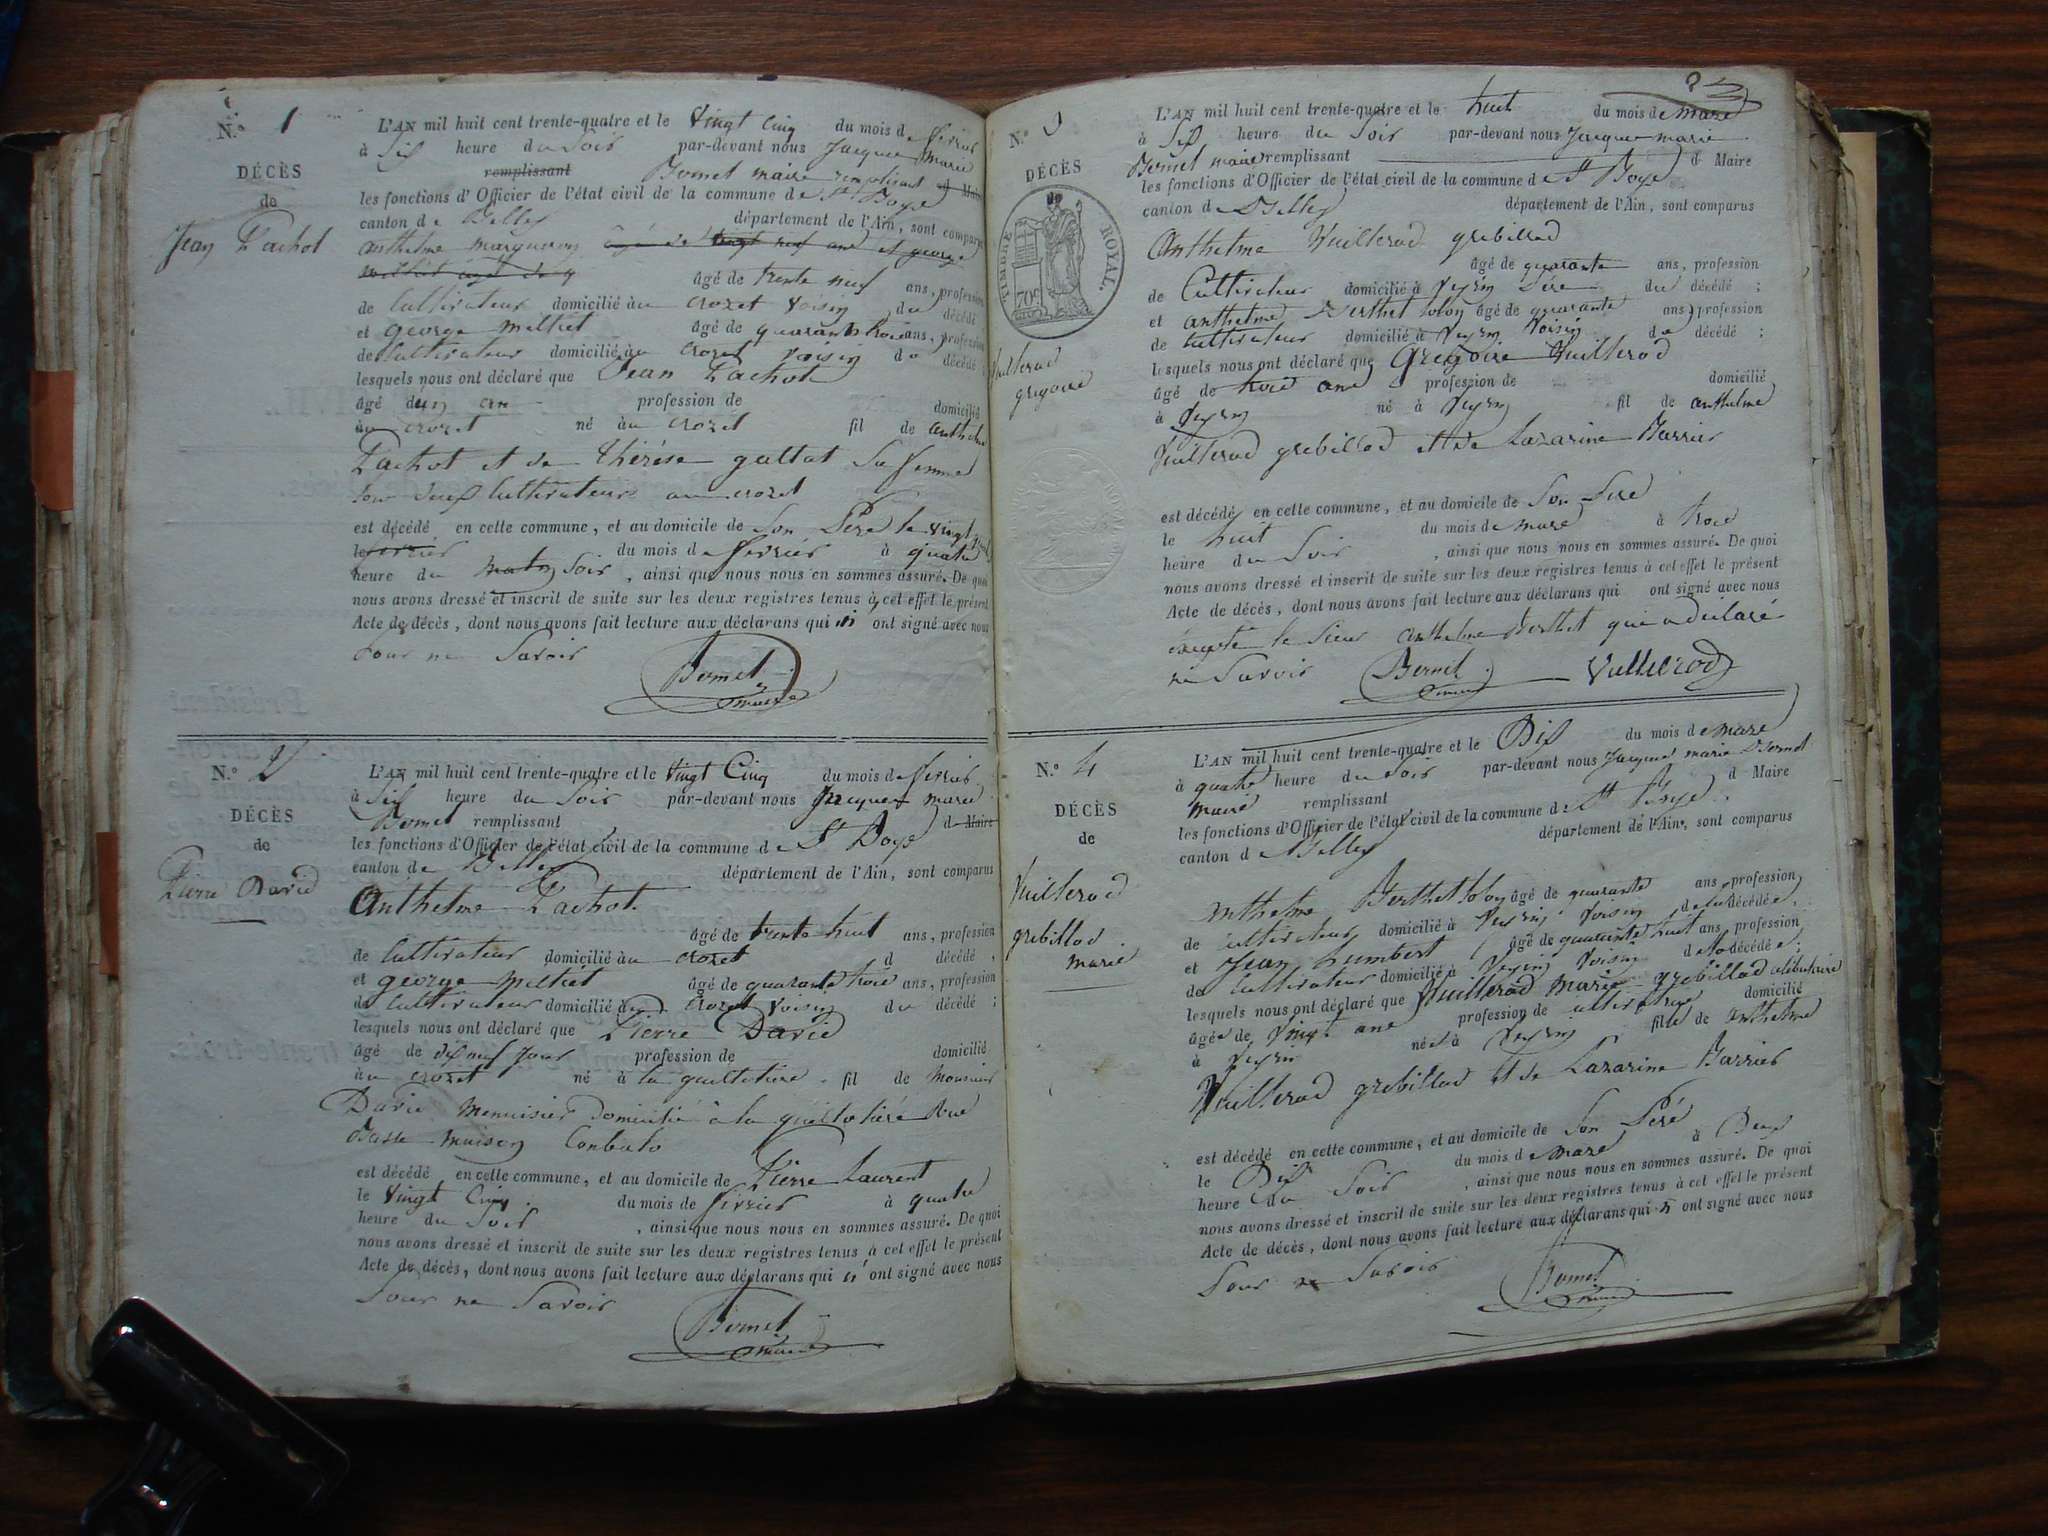 N.° 1
DÉCÈS
de
Jean Pachot
L'AN mil huit cent trente-quatre et le vingt cinq du mois de fevrier
à Six heure du Soir par-devant nous Jacques marie
remplissant Bornet maire remplissant d Maire
les fonctions d'Officier de l'état civil de la commune de St Boys
canton de Belley département de l'Ain, sont comparus
anthelme marqueron âgé de vingt neuf ans et george
âgé de trente neuf ans, profession
de Cultivateur domicilié au crozet voisin du décédé
et george milliet âgé de quarante trois ans, profession
de Cultivateur domicilié au crozet voisin du décédé
lesquels nous ont déclaré que Jean Pachot
âgé de un an profession de domicilié
au crozet né au crozet fil de anthelme
Pachot et de thérèse gallat sa femme
tous deux Cultivateurs au crozet
est décédé en cette commune, et au domicile de Son Père le vingt
le fevrier du mois de fevrier à quatre
heure du matin Soir, ainsi que nous nous en sommes assuré. De quoi
nous avons dressé et inscrit de suite sur les deux registres tenus à cet effet le présent
Acte de décès, dont nous avons fait lecture aux déclarans qui n'ont signé avec nous
pour ne Savoir
Bornet
maire
N.° 2
DÉCÈS
de
Pierre David
L'AN mil huit cent trente-quatre et le vingt Cinq du mois de fevrier
à Six heure du Soir par-devant nous Jacques marie
Bornet remplissant d Maire
les fonctions d'Officier de l'état civil de la commune de St Boys
canton de Belley département de l'Ain, sont comparus
Anthelme Pachot
âgé de trente huit ans, profession
de Cultivateur domicilié au crozet d décédé,
et george milliet âgé de quarante trois ans, profession
de Cultivateur domicilié au crozet voisin du décédé;
lesquels nous ont déclaré que Pierre David
âgé de dix neuf jour profession de domicilié
au crozet né à la guillotiere fil de Monsieur
David Menuisier Domicilié à la guillotière Rue
Basse maison Combalo
est décédé en cette commune, et au domicile de Pierre Laurent
le vingt Cinq du mois de fevrier à quatre
heure du Soir, ainsi que nous nous en sommes assuré. De quoi
nous avons dressé et inscrit de suite sur les deux registres tenus à cet effet le présent
Acte de décès, dont nous avons fait lecture aux déclarans qui n'ont signé avec nous
pour ne Savoir
Bornet
maire
N.° 3
DÉCÈS
de
TIMBRE ROYAL.
70c
Vuillerod
gregoire
L'AN mil huit cent trente-quatre et le huit du mois de mars
à Six heure du Soir par-devant nous Jacques marie
Bornet maire remplissant d Maire
les fonctions d'Officier de l'état civil de la commune de St Boys
canton de Belley département de l'Ain, sont comparus
Anthelme Vuillerod grebillod
âgé de quarante ans, profession
de Cultivateur domicilié à Veyrin Père du décédé;
et anthelme Berthet bolon âgé de quarante ans, profession
de Cultivateur domicilié à Veyrin Voisin du décédé;
lesquels nous ont déclaré que Gregoire Vuillerod
âgé de trois ans profession de domicilié
à Veyrin né à Veyrin fil de anthelme
Vuillerod grebillod et de Lazarine Barrier
est décédé en cette commune, et au domicile de Son Père
le huit du mois de mars à trois
heure du Soir, ainsi que nous nous en sommes assuré. De quoi
nous avons dressé et inscrit de suite sur les deux registres tenus à cet effet le présent
Acte de décès, dont nous avons fait lecture aux déclarans qui ont signé avec nous
excepté le Sieur anthelme Berthet qui a déclaré
ne Savoir Bornet maire Vuillerod
N.° 4
DÉCÈS
de
Vuillerod
grebillod
marie
L'AN mil huit cent trente-quatre et le Dix du mois de mars
à quatre heure du Soir par-devant nous Jacques marie Bornet
maire remplissant d Maire
les fonctions d'Officier de l'état civil de la commune d St Boys
canton d Belley département de l'Ain, sont comparus
Anthelme Berthet bolon âgé de quarante ans, profession
de Cultivateur domicilié à Veyrin Voisin de la décédée,
et Jean humbert âgé de quarante huit ans, profession
de Cultivateur domicilié à Veyrin Voisin de la décédée;
lesquels nous ont déclaré que Vuillerod Marie grebillod célibataire
âgée de Vingt ans profession de cultivatrice domicilié
à Veyrin née à Veyrin fille de anthelme
Vuillerod grebillod et de Lazarine Barrier
est décédé en cette commune, et au domicile de Son Père
le Dix du mois de mars à Deux
heure du Soir, ainsi que nous nous en sommes assuré. De quoi
nous avons dressé et inscrit de suite sur les deux registres tenus à cet effet le présent
Acte de décès, dont nous avons fait lecture aux déclarans qui n'ont signé avec nous
pour ne Savoir
Bornet
maire